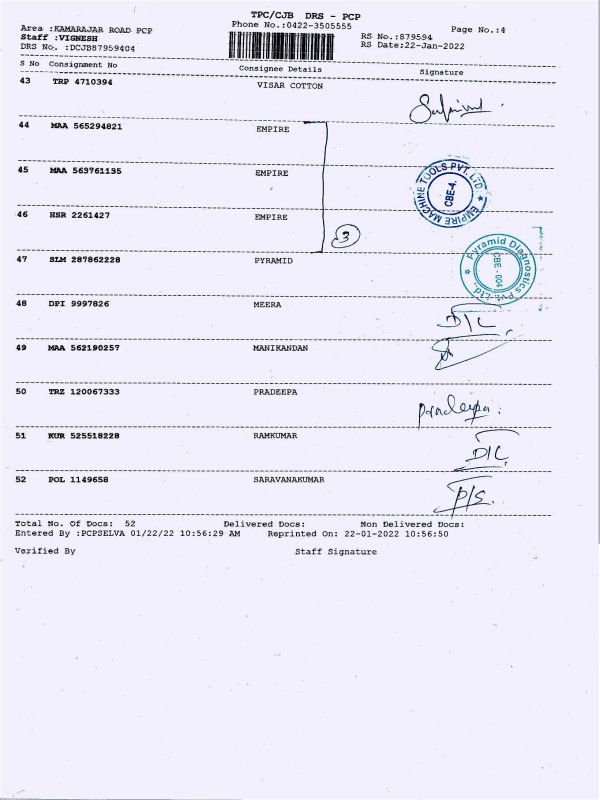 TPC/CJB DRS - PCP
Area :KAMARAJAR ROAD PCP Phone No.:0422-3505555 Page No.:4
Staff :VIGNESH RS No.:879594
DRS No. :DCJB87959404 RS Date:22-Jan-2022
S No Consignment No Consignee Details Signature
43 TRP 4710394 VISAR COTTON
44 MAA 565294821 EMPIRE
45 MAA 563761135 EMPIRE
EMPIRE MACHINE TOOLS PVT. LTD. CBE-4.
46 HSR 2261427 EMPIRE
3
47 SLM 287862228 PYRAMID
Pyramid Diagnostics Pvt. Ltd. CBE - 004
48 DPI 9997826 MEERA
D/C
49 MAA 562190257 MANIKANDAN
50 TRZ 120067333 PRADEEPA
Pradeepa.
51 KUR 525518228 RAMKUMAR
D/C
52 POL 1149658 SARAVANAKUMAR
P/S.
Total No. Of Docs: 52 Delivered Docs: Non Delivered Docs:
Entered By :PCPSELVA 01/22/22 10:56:29 AM Reprinted On: 22-01-2022 10:56:50
Verified By Staff Signature